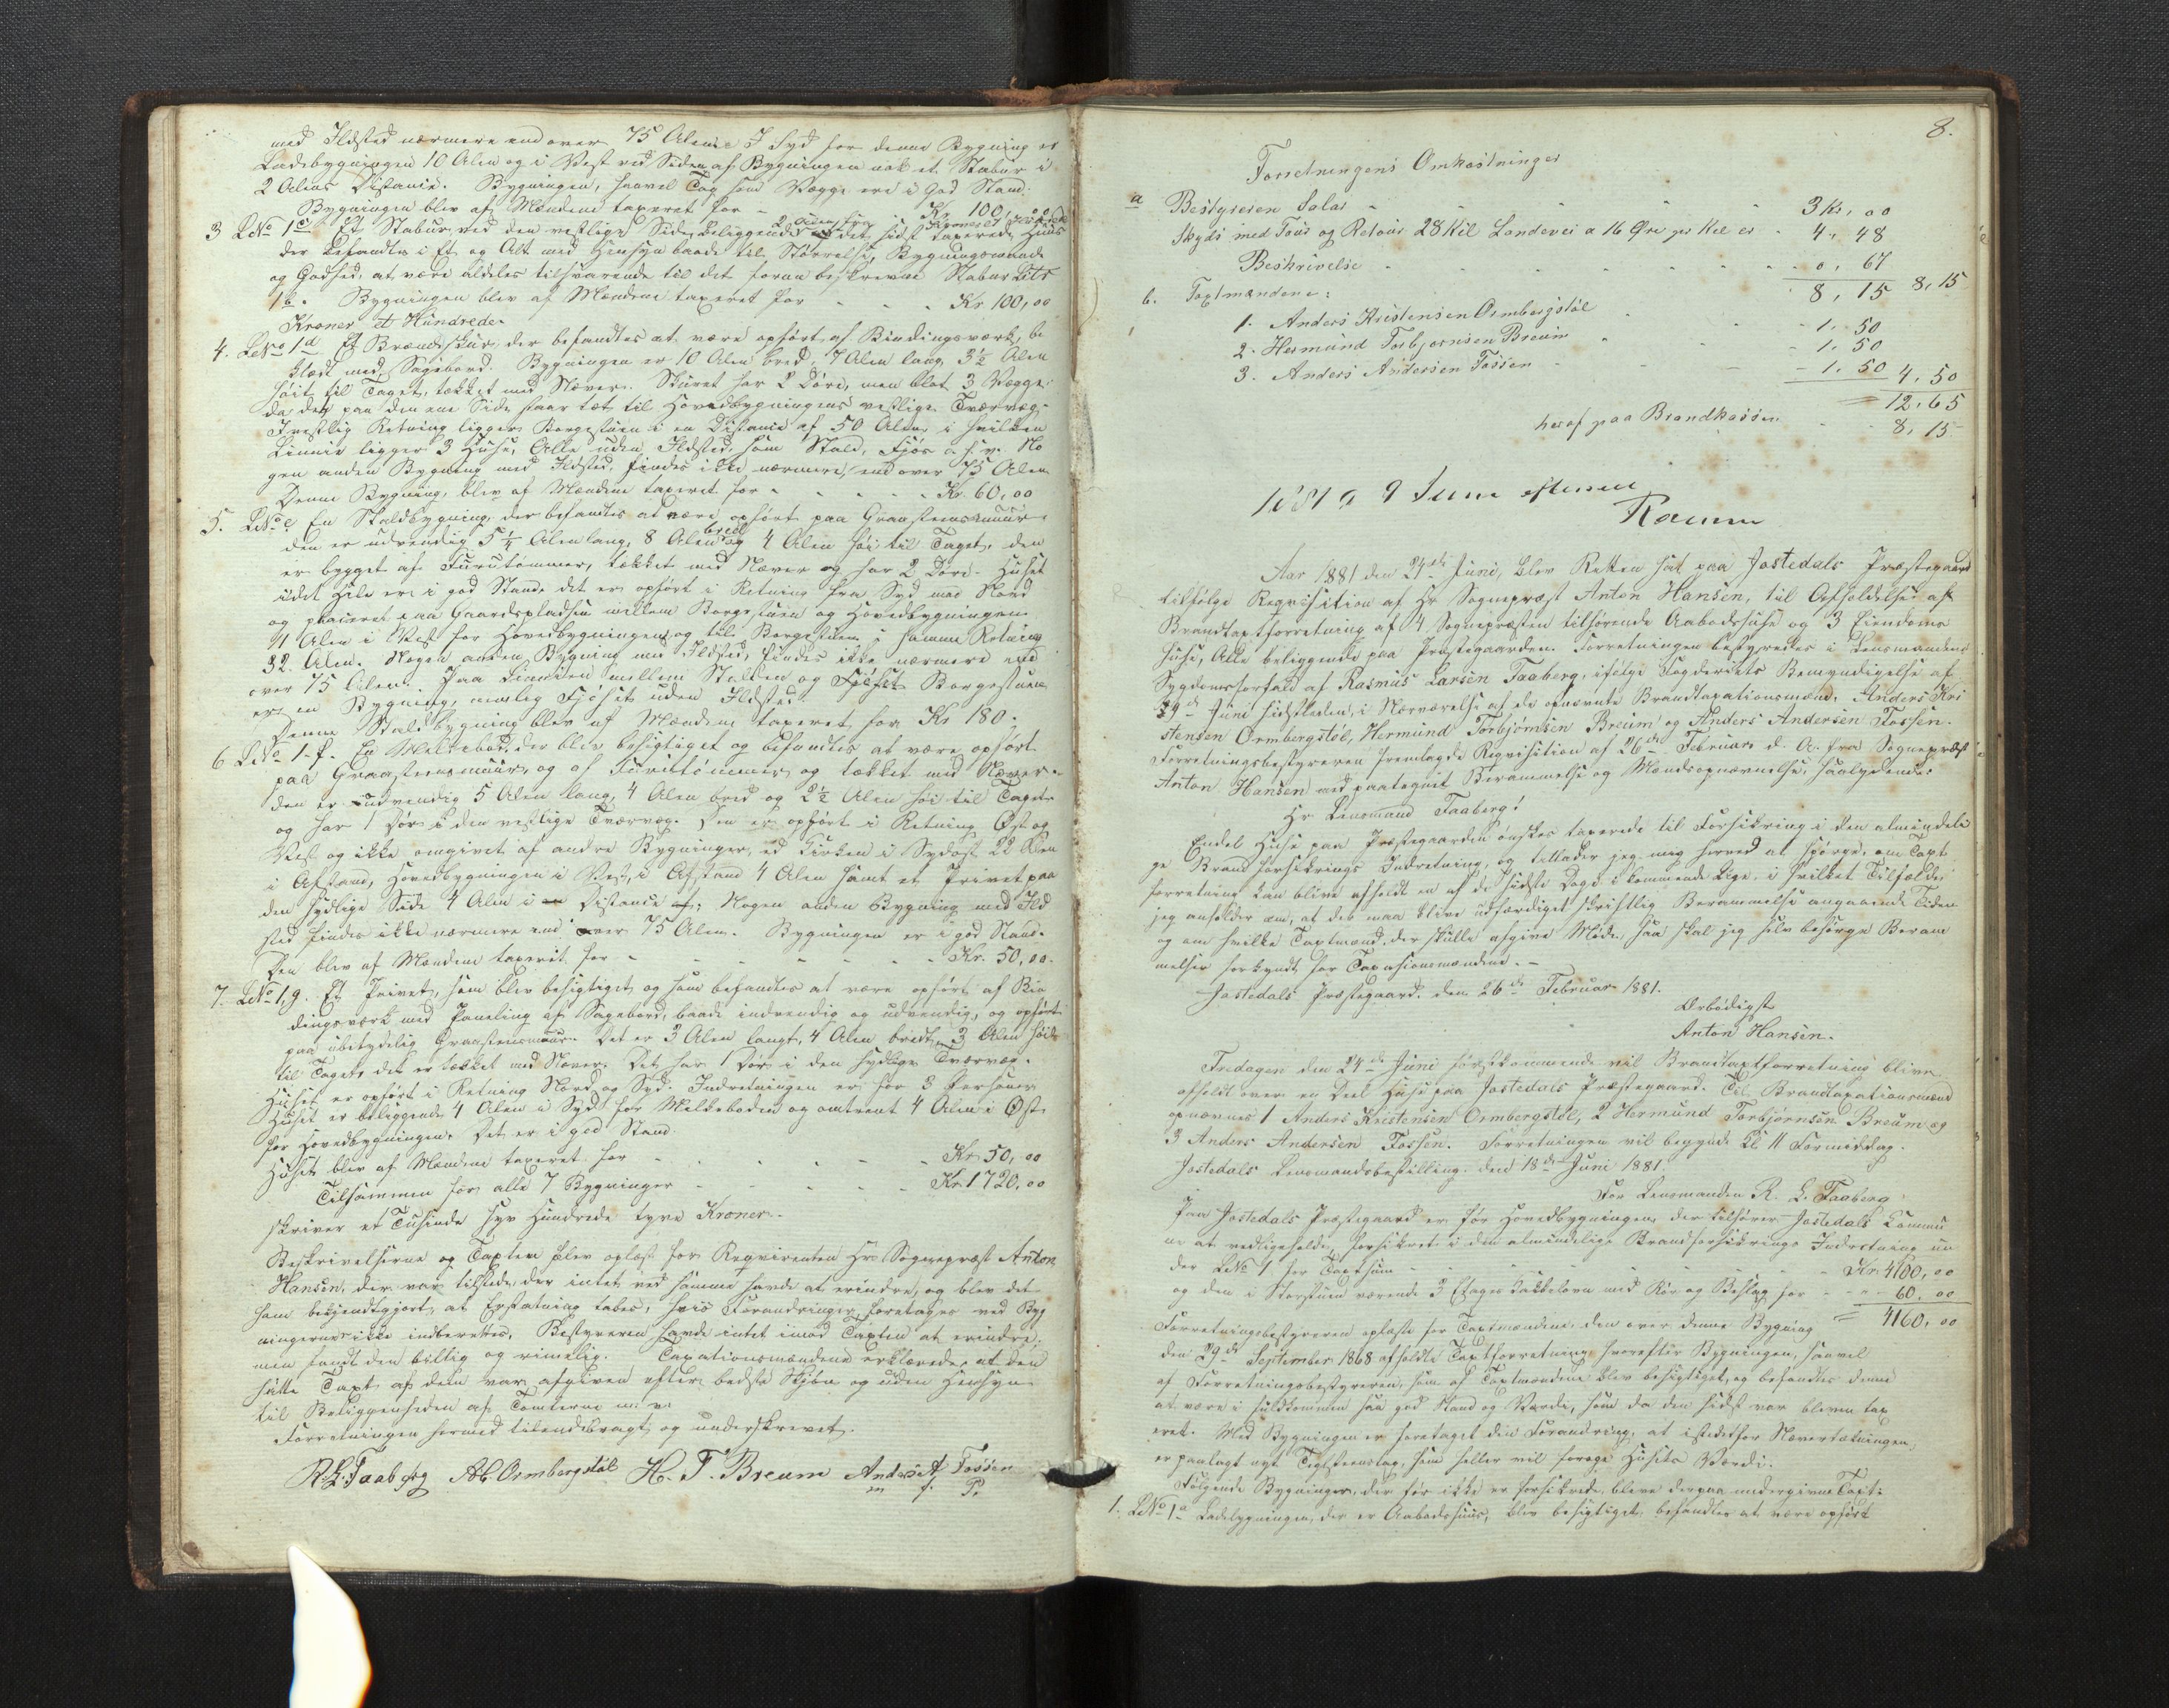 med Ildsted nærmere end over 75 Alen. I Syd for denne Bygning er
Ladebygningen 10 Alen og i Vest ved Siden af Bygningen nok et Stabur i
2 Alens Distance. Bygningen, saavel Tag som Vægge ere i god Stand.
Bygningen blev af Mændene taxeret for - Kr 100,00
Kroner et Hundrede
3 LNo 1c Et Stabur ved den vestlige Side beliggende 2 Alen fra det sidst taxerede Huus
der befandtes i Et og Alt med Hensyn baade til Størrelse, Bygningsmaade
og Godhed, at være aldeles tilsvarende til det foran beskrevne Stabur Litr
1b. Bygningen blev af Mændene taxeret for - - - Kr 100,00
Kroner et Hundrede.
4. LNo 1d Et Brændeskur der befandtes at være opført af Bindingsværk, be
klædt med Sagbord. Bygningen er 10 Alen bred, 7 Alen lang 3½ Alen
høit til Taget, tækket med Næver. Skuret har 2 Døre, men blot 3 Vægge
da det paa den ene Side staar tæt til Hovedbygningens vestlige Tværvæg.
I vestlig Retning ligger Borgestuen i en Distance af 50 Alen i hvilken
Linnie ligger 3 Huse, Alle uden Ildsted, som Stald, Fjøs o.s.v. No
gen anden Bygning med Ildsted, findes ikke nærmere, end over 75 Alen
Denne Bygning blev af Mændene taxeret for - - - Kr. 60,00
5. LNo e En Staldbygning, der befandtes at være opført paa Graasteensmuur.
den er udvendig 5¼ Alen lang, 8 Alen bred og 4 Alen høi til Taget, den
er bygget af Furutømmer, tækket med Næver og har 2 Døre. Huset
i det Hele er i god Stand, det er opført i Retning fra Syd mod Nord
og placeret paa Gaardspladsen mellem Borgestuen og Hovedbygningen
11 Alen i Vest for Hovedbygningen og til Borgestuen i samme Retning
32 Alen. Nogen anden Bygning med Ildsted, findes ikke nærmere end
over 75 Alen. Paa Linnien mellem Stalden og Fjøset Borgestuen
er en Bygning, nemlig Fjøset uden Ildsted.
Denne Staldbygning blev af Mændene taxeret for Kr 180.
6 LNo 1.f. En Melkebod, der blev besigtiget og befandtes at være opført
paa Graasteensmuur, og af Furutømmer og tækket med Næver.
den er indvendig 5 Alen lang, 4 Alen bred og 2½ Alen høi til Taget
og har 1 Dør i den vestlige Tværvæg. Den er opført i Retning Øst og
Vest og ikke omgivet af andre Bygninger, end Kirken i Sydost 22 Alen
i Afstand, Hovedbygningen i Vest, i Afstand 4 Alen samt et Privet paa
den sydlige Side 4 Alen i Distance; Nogen anden Bygning med Ild
sted findes ikke nærmere end over 75 Alen. Bygningen er i god Stand.
Den blev af Mændene taxeret for - - - - - Kr. 50,00.
7. LNo 1,g. Et Privet, som blev besigtiget og som befandtes at være opført af Bin
dingsværk med Paneling af Sagebord, baade indvendig og udvendig, og opført
paa ubetydelig Graasteensmuur. Det er 3 Alen langt, 4 Alen bredt, 3 Alen høit
til Taget, det er tækket med Næver. Det har 1 Dør i den sydlige Tværvæg.
Huset er opført i Retning Nord og Syd. Indretningen er for 3 Personer
Huset er beliggende 4 Alen i Syd for Melkeboden og omtrent 4 Alen i Øst
for Hovedbygningen. Det er i god Stand.
Huset blev af Mændene taxeret for - - - - Kr. 50,00
Tilsammen for alle 7 Bygninger - - - - Kr. 1720,00
skriver et Tusinde syv Hundrede tyve Kroner.
Beskrivelserne og Taxten blev oplæst for Reqvirenten Hr Sognepræst Anton
Hansen, der var tilstede, der intet ved samme havde at erindre, og blev det
ham bekjendtgjort, at Erstatning tabes, hvis Forandringer, foretages ved Byg
ningerne ikke indberettes. Bestyreren havde intet imod Taxten at erindre,
men fandt den billig og rimelig. Taxationsmændene erklærede at den
satte Taxt af dem var afgiven efter bedste Skjøn og uden Hensyn
til Beliggenheden af Tomterne m. v.
Forretningen hermed tilendebragt og underskrevet.
R. L. Taaberg AK Ormbergstøl H. T. Breum Anders A Fossen
m f. P.
8.
Forretningens Omkostninger
a Bestyreren Salar - - - 3 Kr, 00
Skyds med Tour og Retour 28 Kil Landevei a 16 Øre pr Kil er - 4, 48
Beskrivelse - - - - 0, 67
8, 15 8,15
b. Taxtmændene:
1. Anders Kristensen Ormbergstøl - - 1. 50
2. Hermund Torbjørnsen Breum - - 1. 50
3. Anders Andersen Fossen - - 1. 50 4,50
12,65
heraf paa Brandkassen - - 8,15
1881 9 Juni
Aar 1881 den 24de Juni, blev Retten sat paa Jostedals Præstegaard
tilfølge Reqvisition af Hr Sognepræst Anton Hansen, til Afholdelse af
Brandtaxtforretning af 4 Sognepræsten tilhørende Aabodshuse og 3 Eiendoms
huse, Alle beliggende paa Præstegaarden. Forretningen bestyredes i Lensmandens
Sygdomsforfald af Rasmus Larsen Taaberg, ifølge Fogderiets Bemyndigelse af
Juni sidstleden, i Nærværelse af de opnævnte Brandtaxationsmænd. Anders Kri
stensen Ormbergstøl, Hermund Torbjørnsen Breum og Anders Andersen Fossen.
Forretningsbestyreren fremlagde Reqvisition af 26de Februar d. A. fra Sognepræst
Anton Hansen med paategnet Berammelse og Mændsopnævnelse, saalydende:
Hr. Lensmand Taaberg!
Endel Huse paa Præstegaarden ønskes taxerede til Forsikring i den almindeli
ge Brandforsikrings Indretning, og tillader jeg mig herved at spørge, om Taxt
forretning kan blive afholdt en af de sidste Dage i kommende Uge, i hvilket Tilfælde
jeg anholder om, at der maa blive udfærdiget skriftlig Berammelse angaaende Tiden
og om hvilke Taxtmænd, der skulle afgive Møde, saa skal jeg selv besørge Beram
melser forkyndt for Taxasionsmændene. -
Jostedals Præstegaard, den 26de Februar 1881.
Ærbødigst
Anton Hansen.
Fredagen den 24de Juni førstkommende vil Brandtaxtforretning blive
afholdt over en Deel Huse paa Jostedals Præstegaard. Til Brandtaxationsmænd
opnævnes 1 Anders Kristensen Ormbergstøl, 2 Hermund Torbjørnsen Breum og
3 Anders Andersen Fossen. Forretningen vil begynde Kl 11 Formiddag.
Jostedals Lensmandsbestilling den 18de Juni 1881.
For Lensmanden R. L. Taaberg
Paa Jostedals Præstegaard er før Hovedbygningen, der tilhører Jostedals Kommu
ne at vedligeholde, forsikret i den almindelige Brandforsikrings Indretning un
der LNo 1 for Taxtsum - - - - Kr. 4100,00
og den i Storstuen værende 3 Etages Kakkelovn med Rør og Beslag for - - - 60,00
Forretningsbestyreren oplæste for Taxtmændene, den over denne Bygning = 4160,00
den 29de September 1868 afholdte Taxtforretning hvorefter Bygningen, saavel
af Forretningsbestyreren, som af Taxtmændene blev besigtiget, og befandtes denne
at være i fuldkommen saa god Stand og Værdi, som da den sidst var bleven tax
eret. Med Bygningen er foretaget den Forandring, at istedetfor Nævertækningen,
er paalagt nyt Teglsteenstag, som heller vil forøge Husets Værdi.
Følgende Bygninger, der før ikke er forsikrede, bleve derpaa undergivne Taxt:
1. LNo 1a Ladebygningen, der er Aabodshuus, blev besigtiget, befandtes at være opført